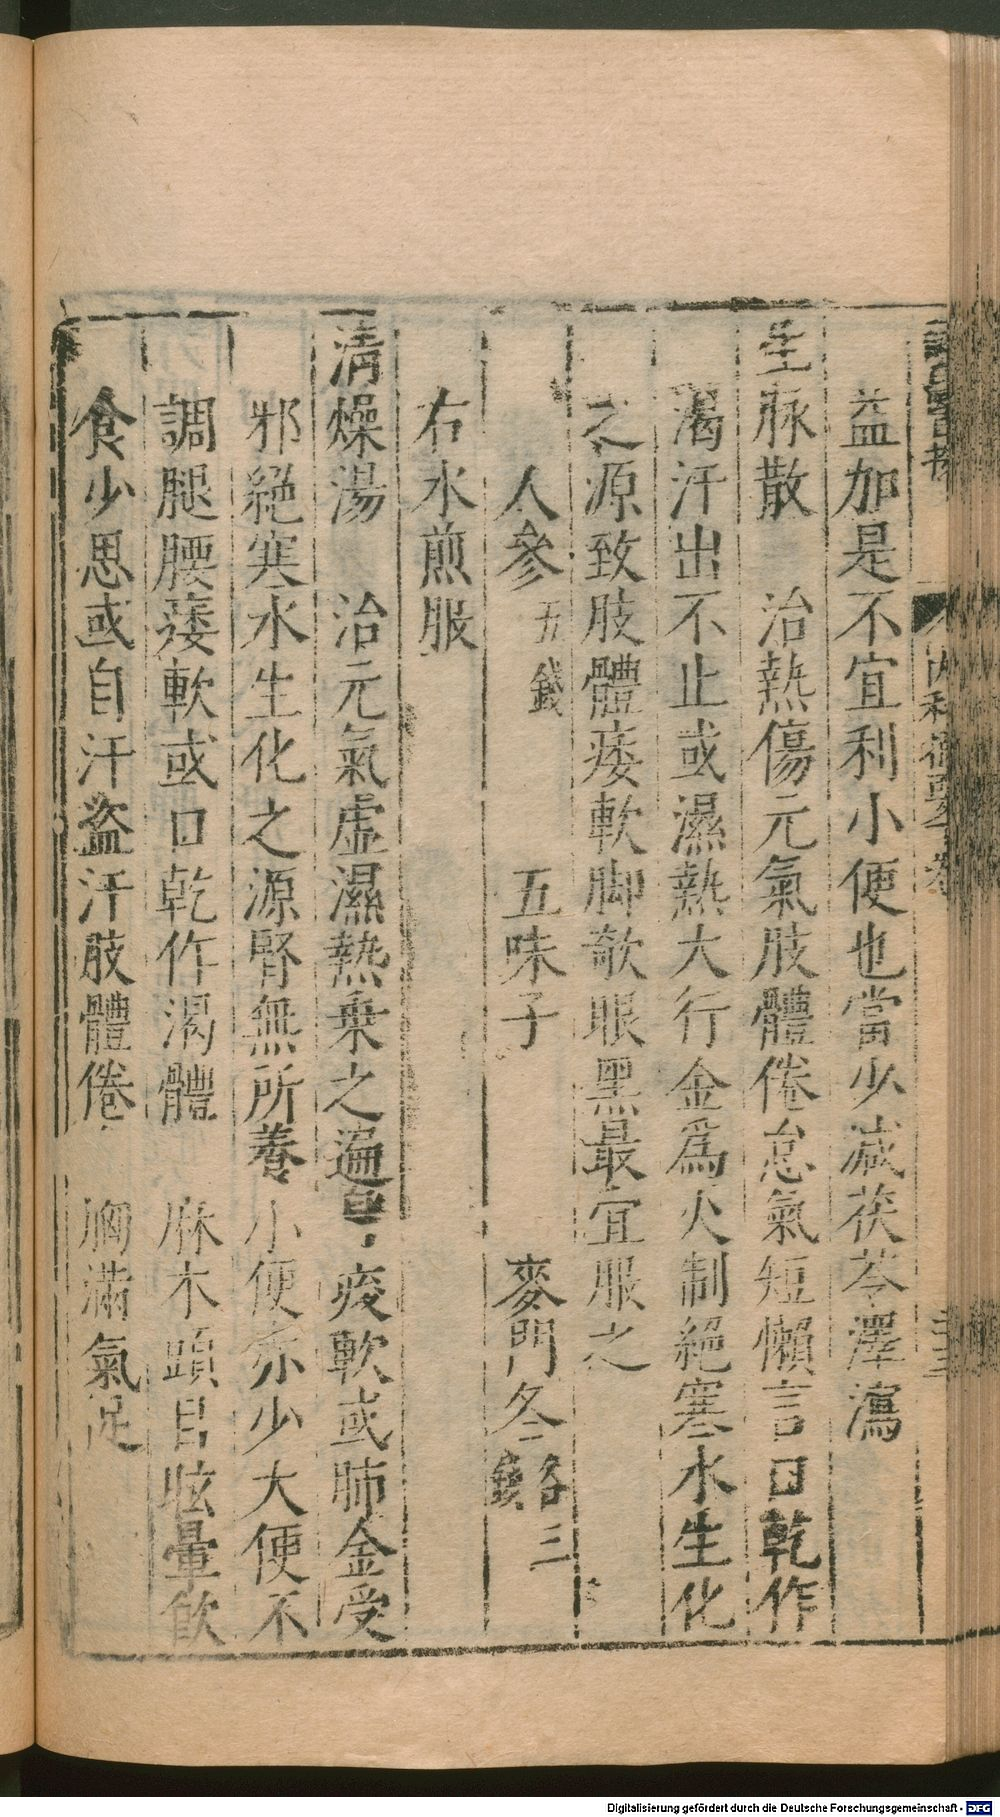 益加是不宜利小便也當少減茯苓澤瀉
生脉散　治熱傷元氣肢體倦怠氣短懶言口乾作
渴汗出不止或濕熱大行金爲火制絕寒水生化
之源致肢體痿軟脚欹眼黑最宜服之
人參五錢　五味子　麥門冬各三錢
右水煎服
清燥湯　治元氣虛濕熱乗之遍身痠軟或肺金受
邪絕寒水生化之源腎無所養小便赤少大便不
調腿腰痿軟或口乾作渴體麻木頭目眩暈飲
食少思或自汗盜汗肢體倦　胸滿氣促
Digitalisierung gefördert durch die Deutsche Forschungsgemeinschaft - DFG